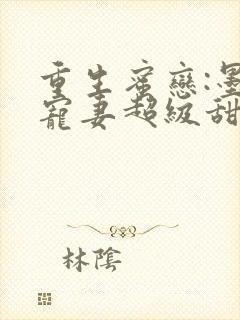 重生蜜戀:墨
寵妻超級甜
林陰